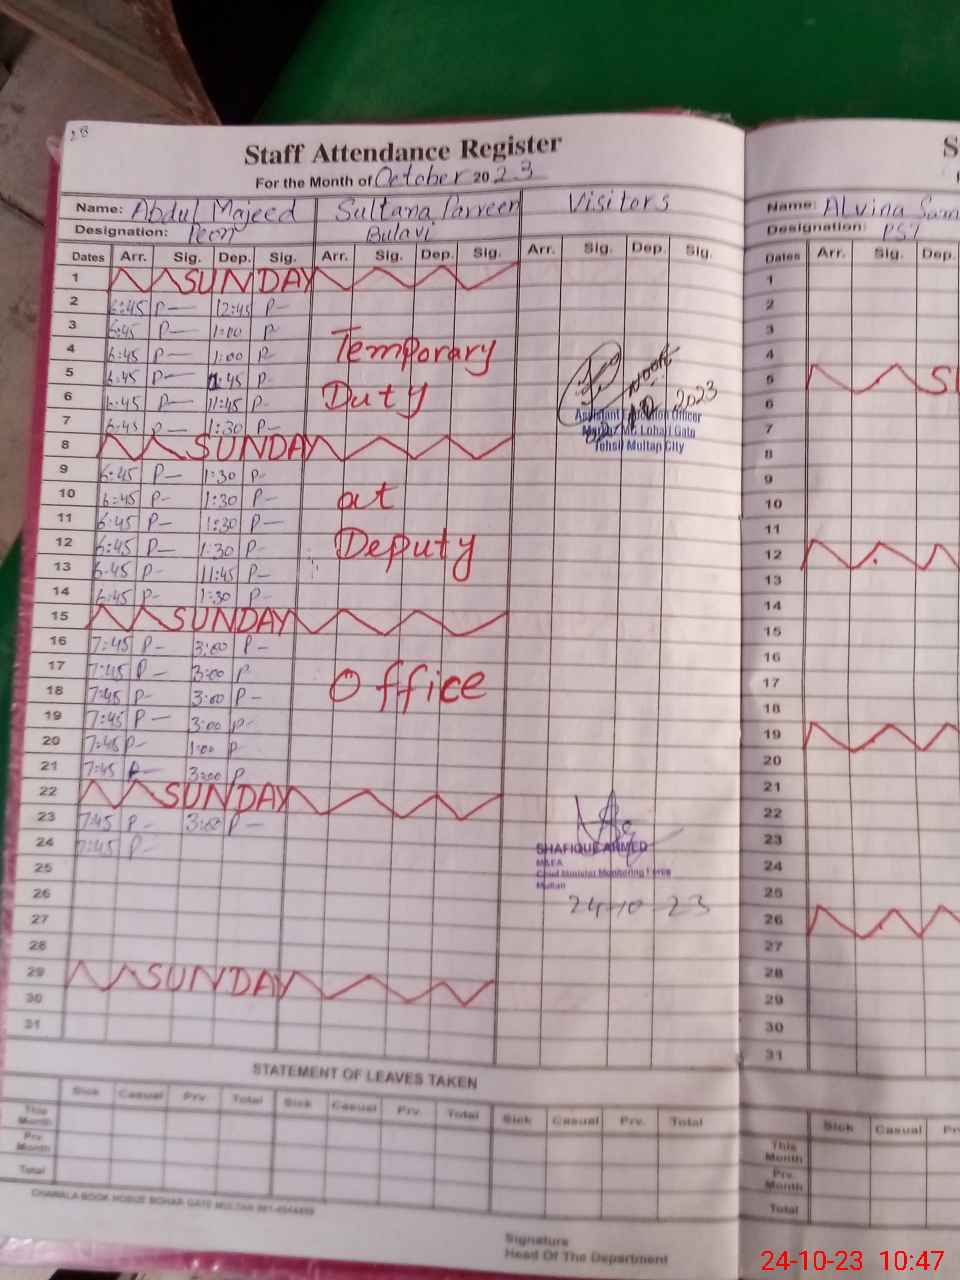 28
Staff Attendance Register
For the Month of October 2023
Name: Abdul Majeed Sultana Parveen Visitors
Designation: Peon Bulavi
Dates Arr. Sig. Dep. Sig. Arr. Sig. Dep. Sig. Arr. Sig. Dep. Sig.
1 SUNDAY
2 6:45 P 12:45 P
3 6:45 P 1:00 P
4 6:45 P 1:00 P Temporary
5 6:45 P 45 P
6 6:45 P 11:45 P Duty
7 6:45 P 1:30 P
2023
Assistant Education Officer
Lohari Gate
Tehsil Multan City
8 SUNDAY
9 6:45 P 1:30 P
10 6:45 P 1:30 P at
11 6:45 P 1:30 P
12 6:45 P 1:30 P Deputy
13 6:45 P 11:45 P
14 6:45 P 1:30 P
15 SUNDAY
16 7:45 P 3:00 P
17 7:45 P 3:00 P
18 7:45 P 3:00 P Office
19 7:45 P 3:00 P
20 7:45 P 1:00 P
21 7:45 P 3:00 P
22 SUNDAY
23 7:45 P 3:00 P
24 7:45 P
SHAFIQUE AHMED
MAEA
Chief Minister Monitoring Force
Multan
24-10-23
25
26
27
28
29 SUNDAY
30
31
STATEMENT OF LEAVES TAKEN
Sick Casual Prv Total Sick Casual Prv. Total Sick Casual Prv. Total
This Month
Prv. Month
Total
CHAWALA BOOK HOUSE BOHAR GATE MULTAN
Signature
Head Of The Department
S
Name: Alvina
Designation: PST
Dates Arr. Sig. Dep.
1
2
3
4
5 S
6
7
8
9
10
11
12
13
14
15
16
17
18
19
20
21
22
23
24
25
26
27
28
29
30
31
Sick Casual
This Month
Prv. Month
Total
24-10-23 10:47